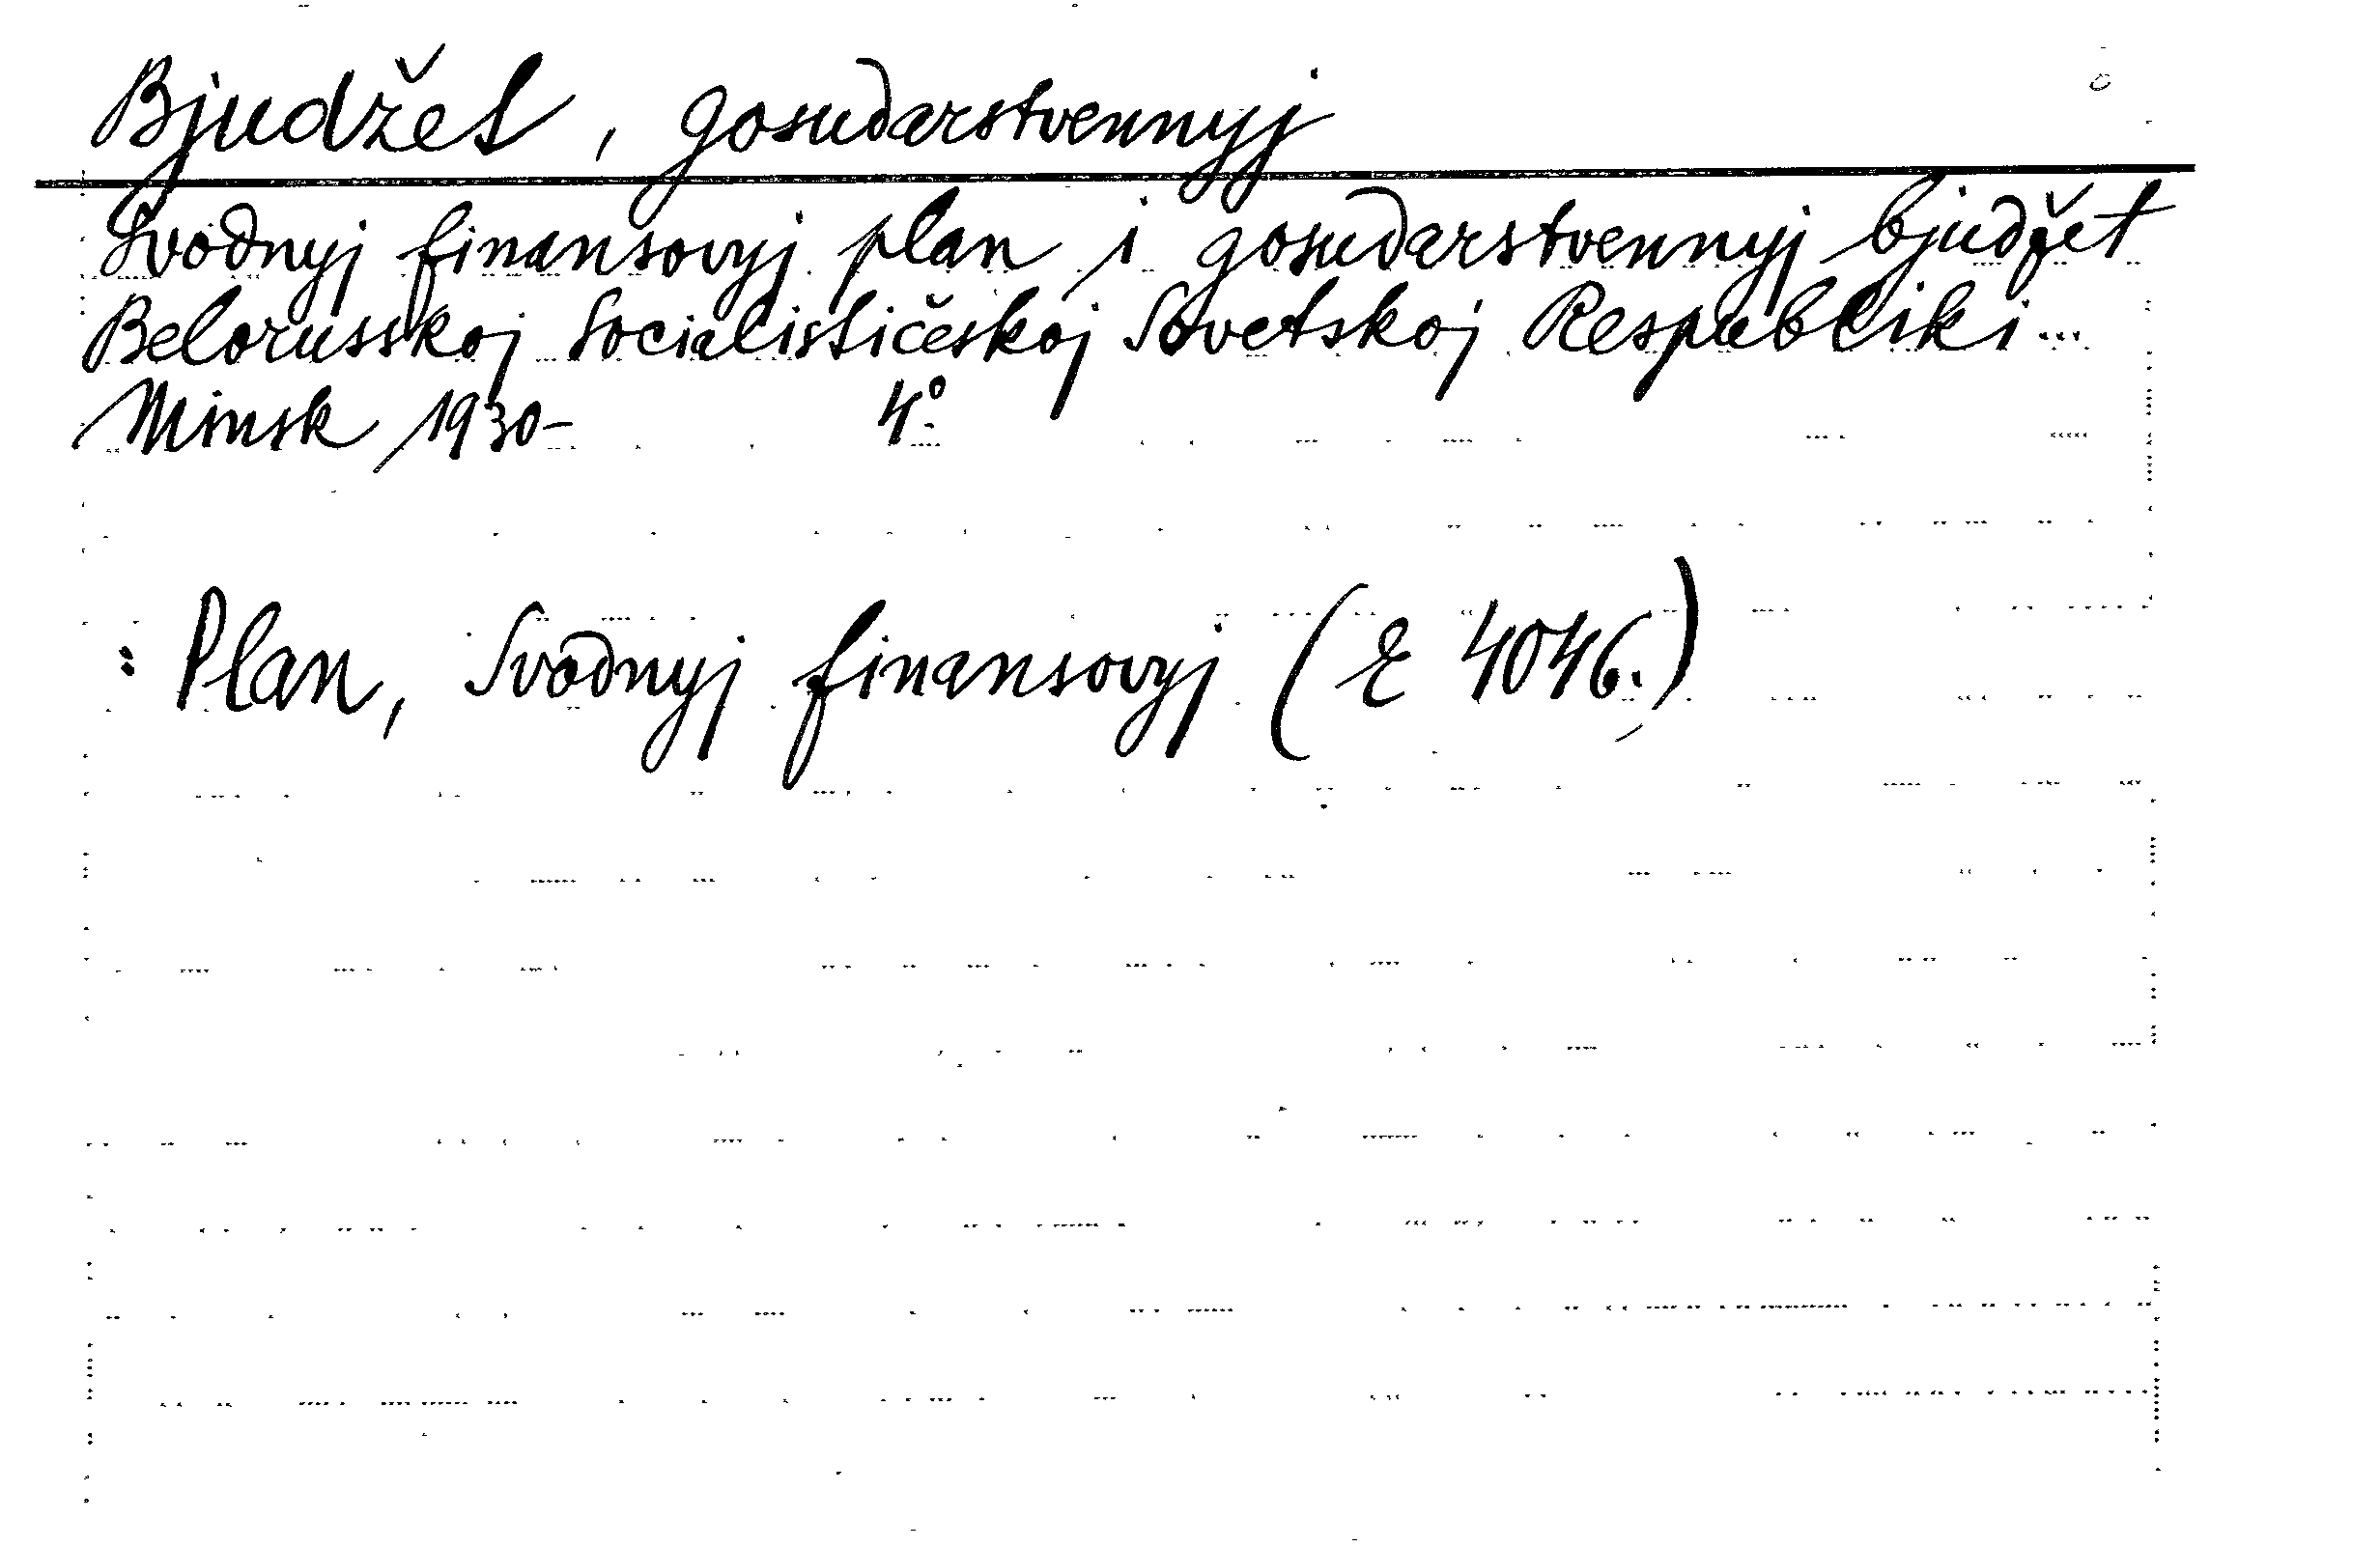 Bjudžet, gosudarstvennyj
Svodnyj finansovyj plan i gosudarstvennyj bjudžet
Belorusskoj Socialističeskoj Sovetskoj Respubliki...
Minsk 1930- 4°.
: Plan, Svodnyj finansovyj (E 4046.)